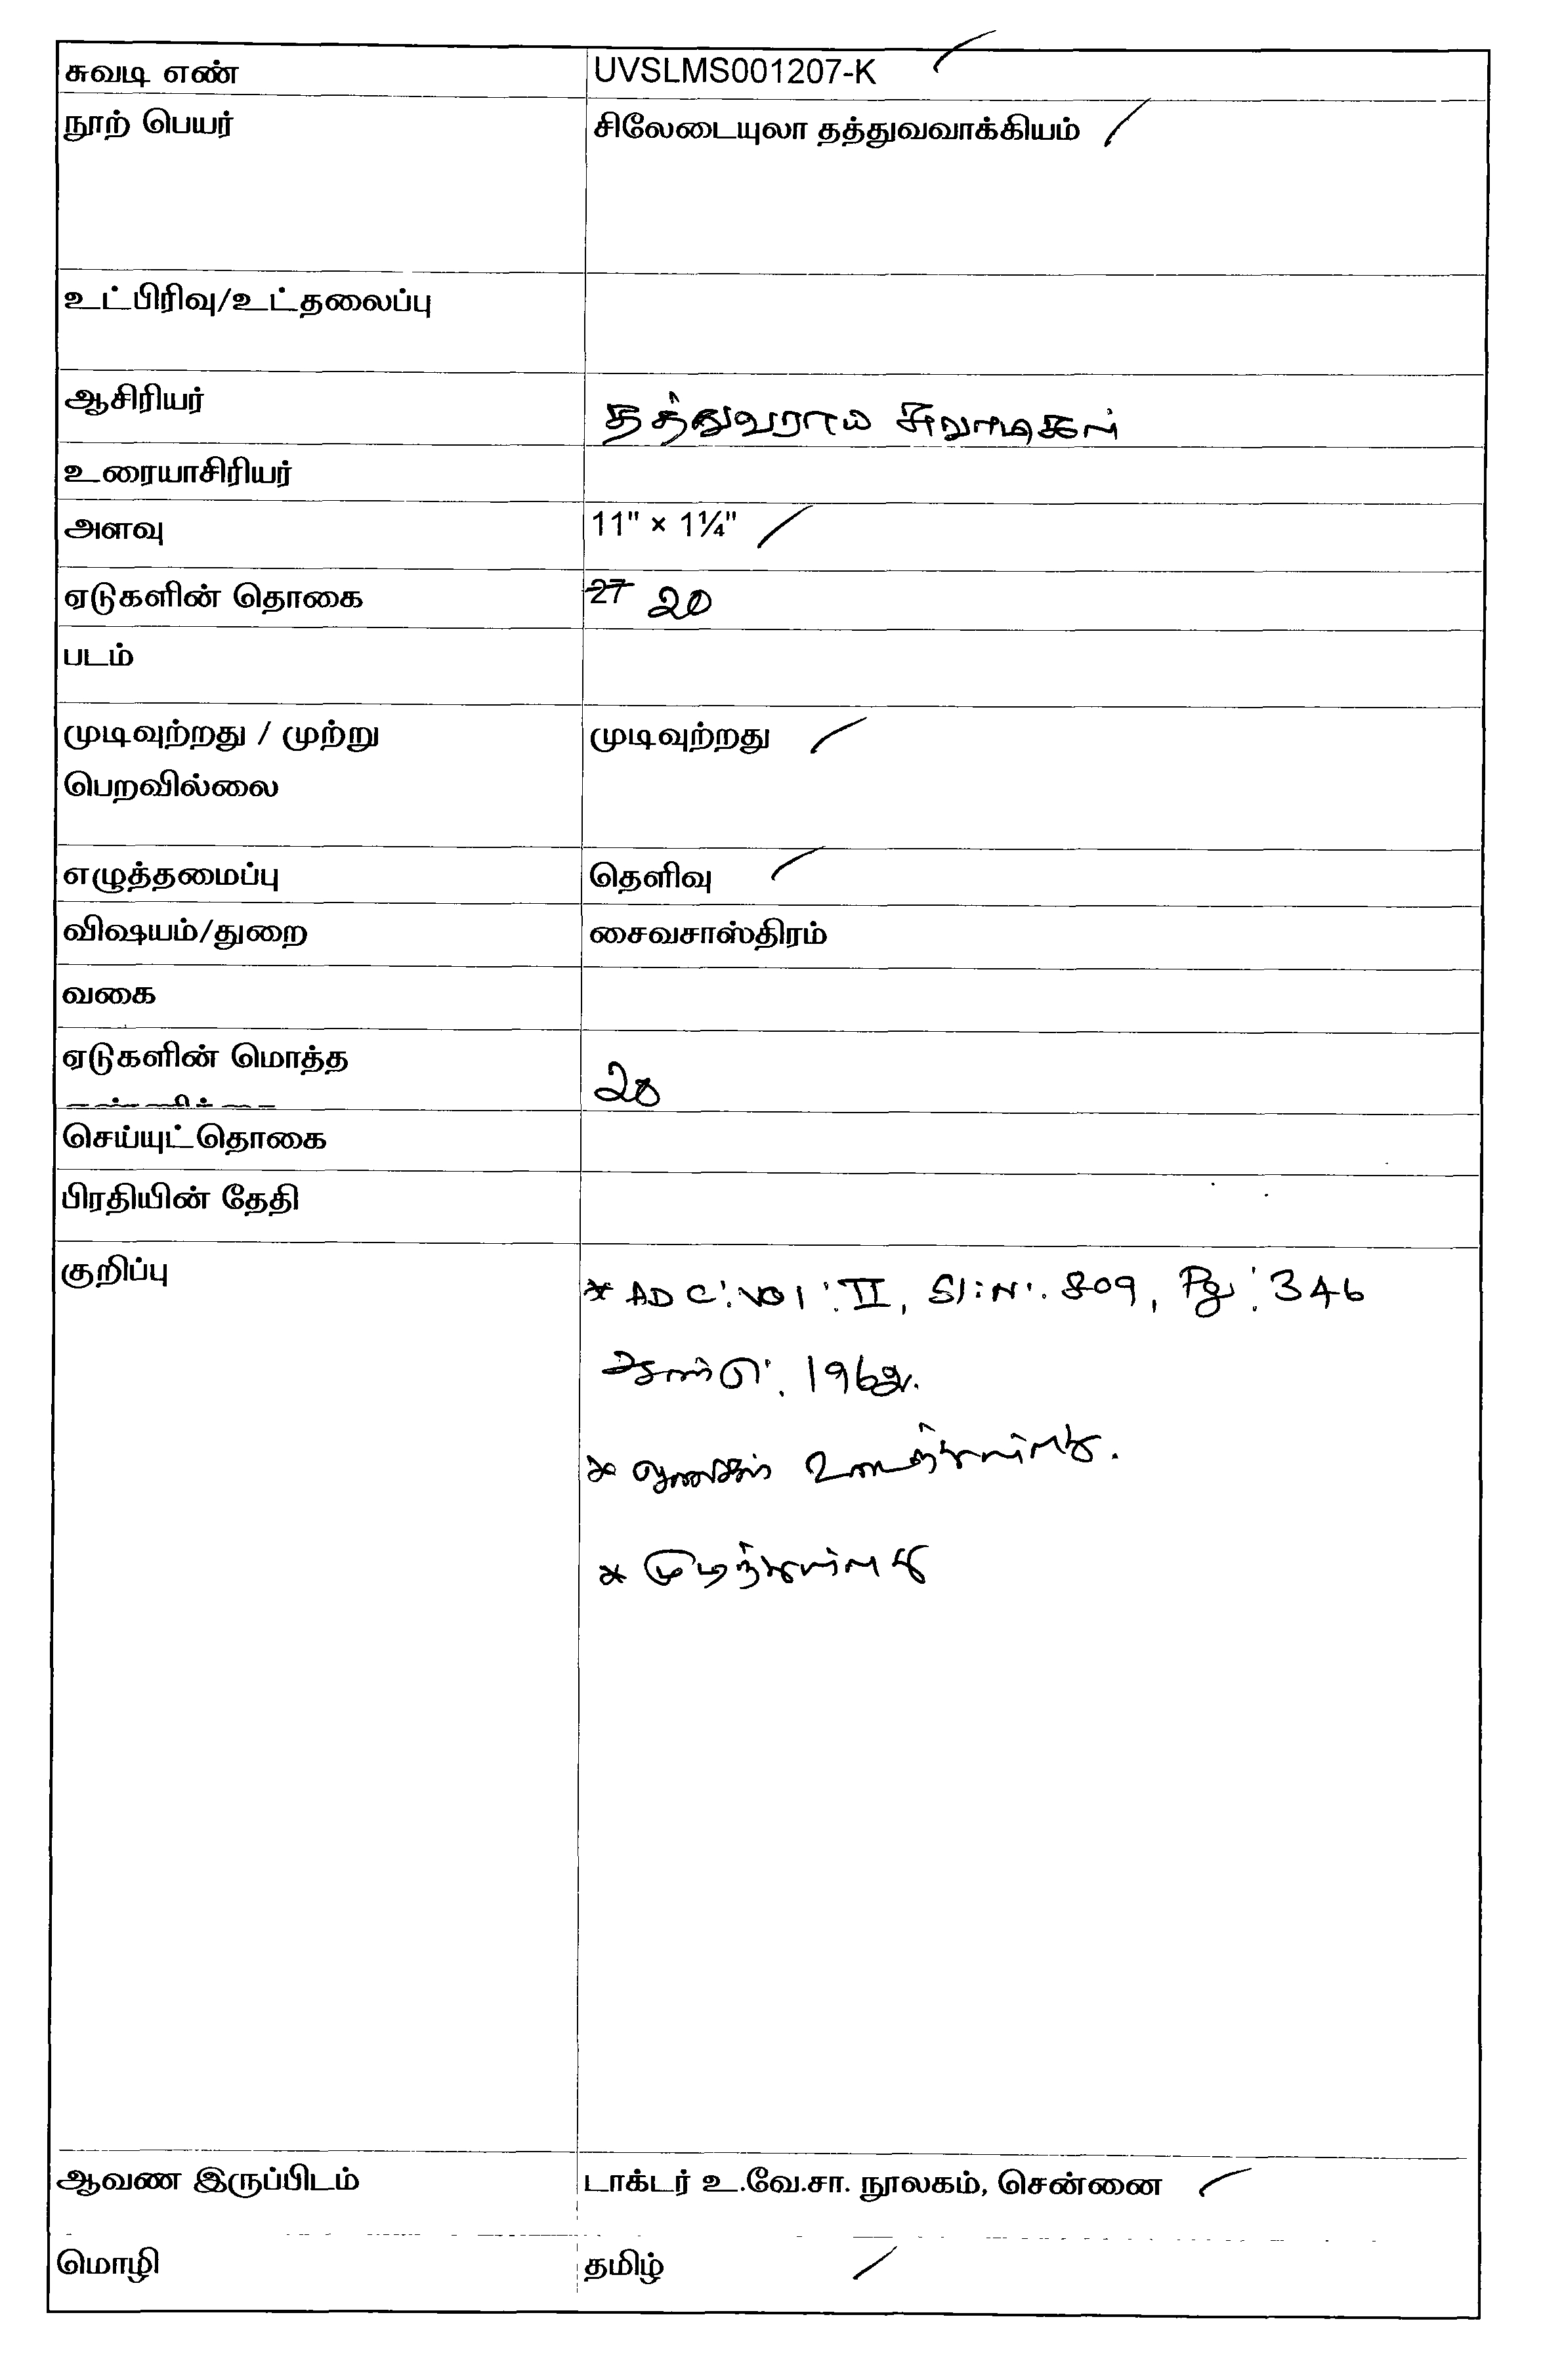 சுவடி எண் UVSLMS001207-K
நூற் பெயர் சிலேடையுலா தத்துவவாக்கியம்
உட்பிரிவு/உட்தலைப்பு
ஆசிரியர் தத்துவராய சுவாமிகள்
உரையாசிரியர்
அளவு 11" × 1¼"
ஏடுகளின் தொகை 27 20
படம்
முடிவுற்றது / முற்று முடிவுற்றது
பெறவில்லை
எழுத்தமைப்பு தெளிவு
விஷயம்/துறை சைவசாஸ்திரம்
வகை
ஏடுகளின் மொத்த 20
செய்யுட்தொகை
பிரதியின் தேதி
குறிப்பு * ADC. Vol. II, Sl. N. 809, Pg. 346
*
* முடிந்துள்ளது
ஆவண இருப்பிடம் டாக்டர் உ.வே.சா. நூலகம், சென்னை
மொழி தமிழ்